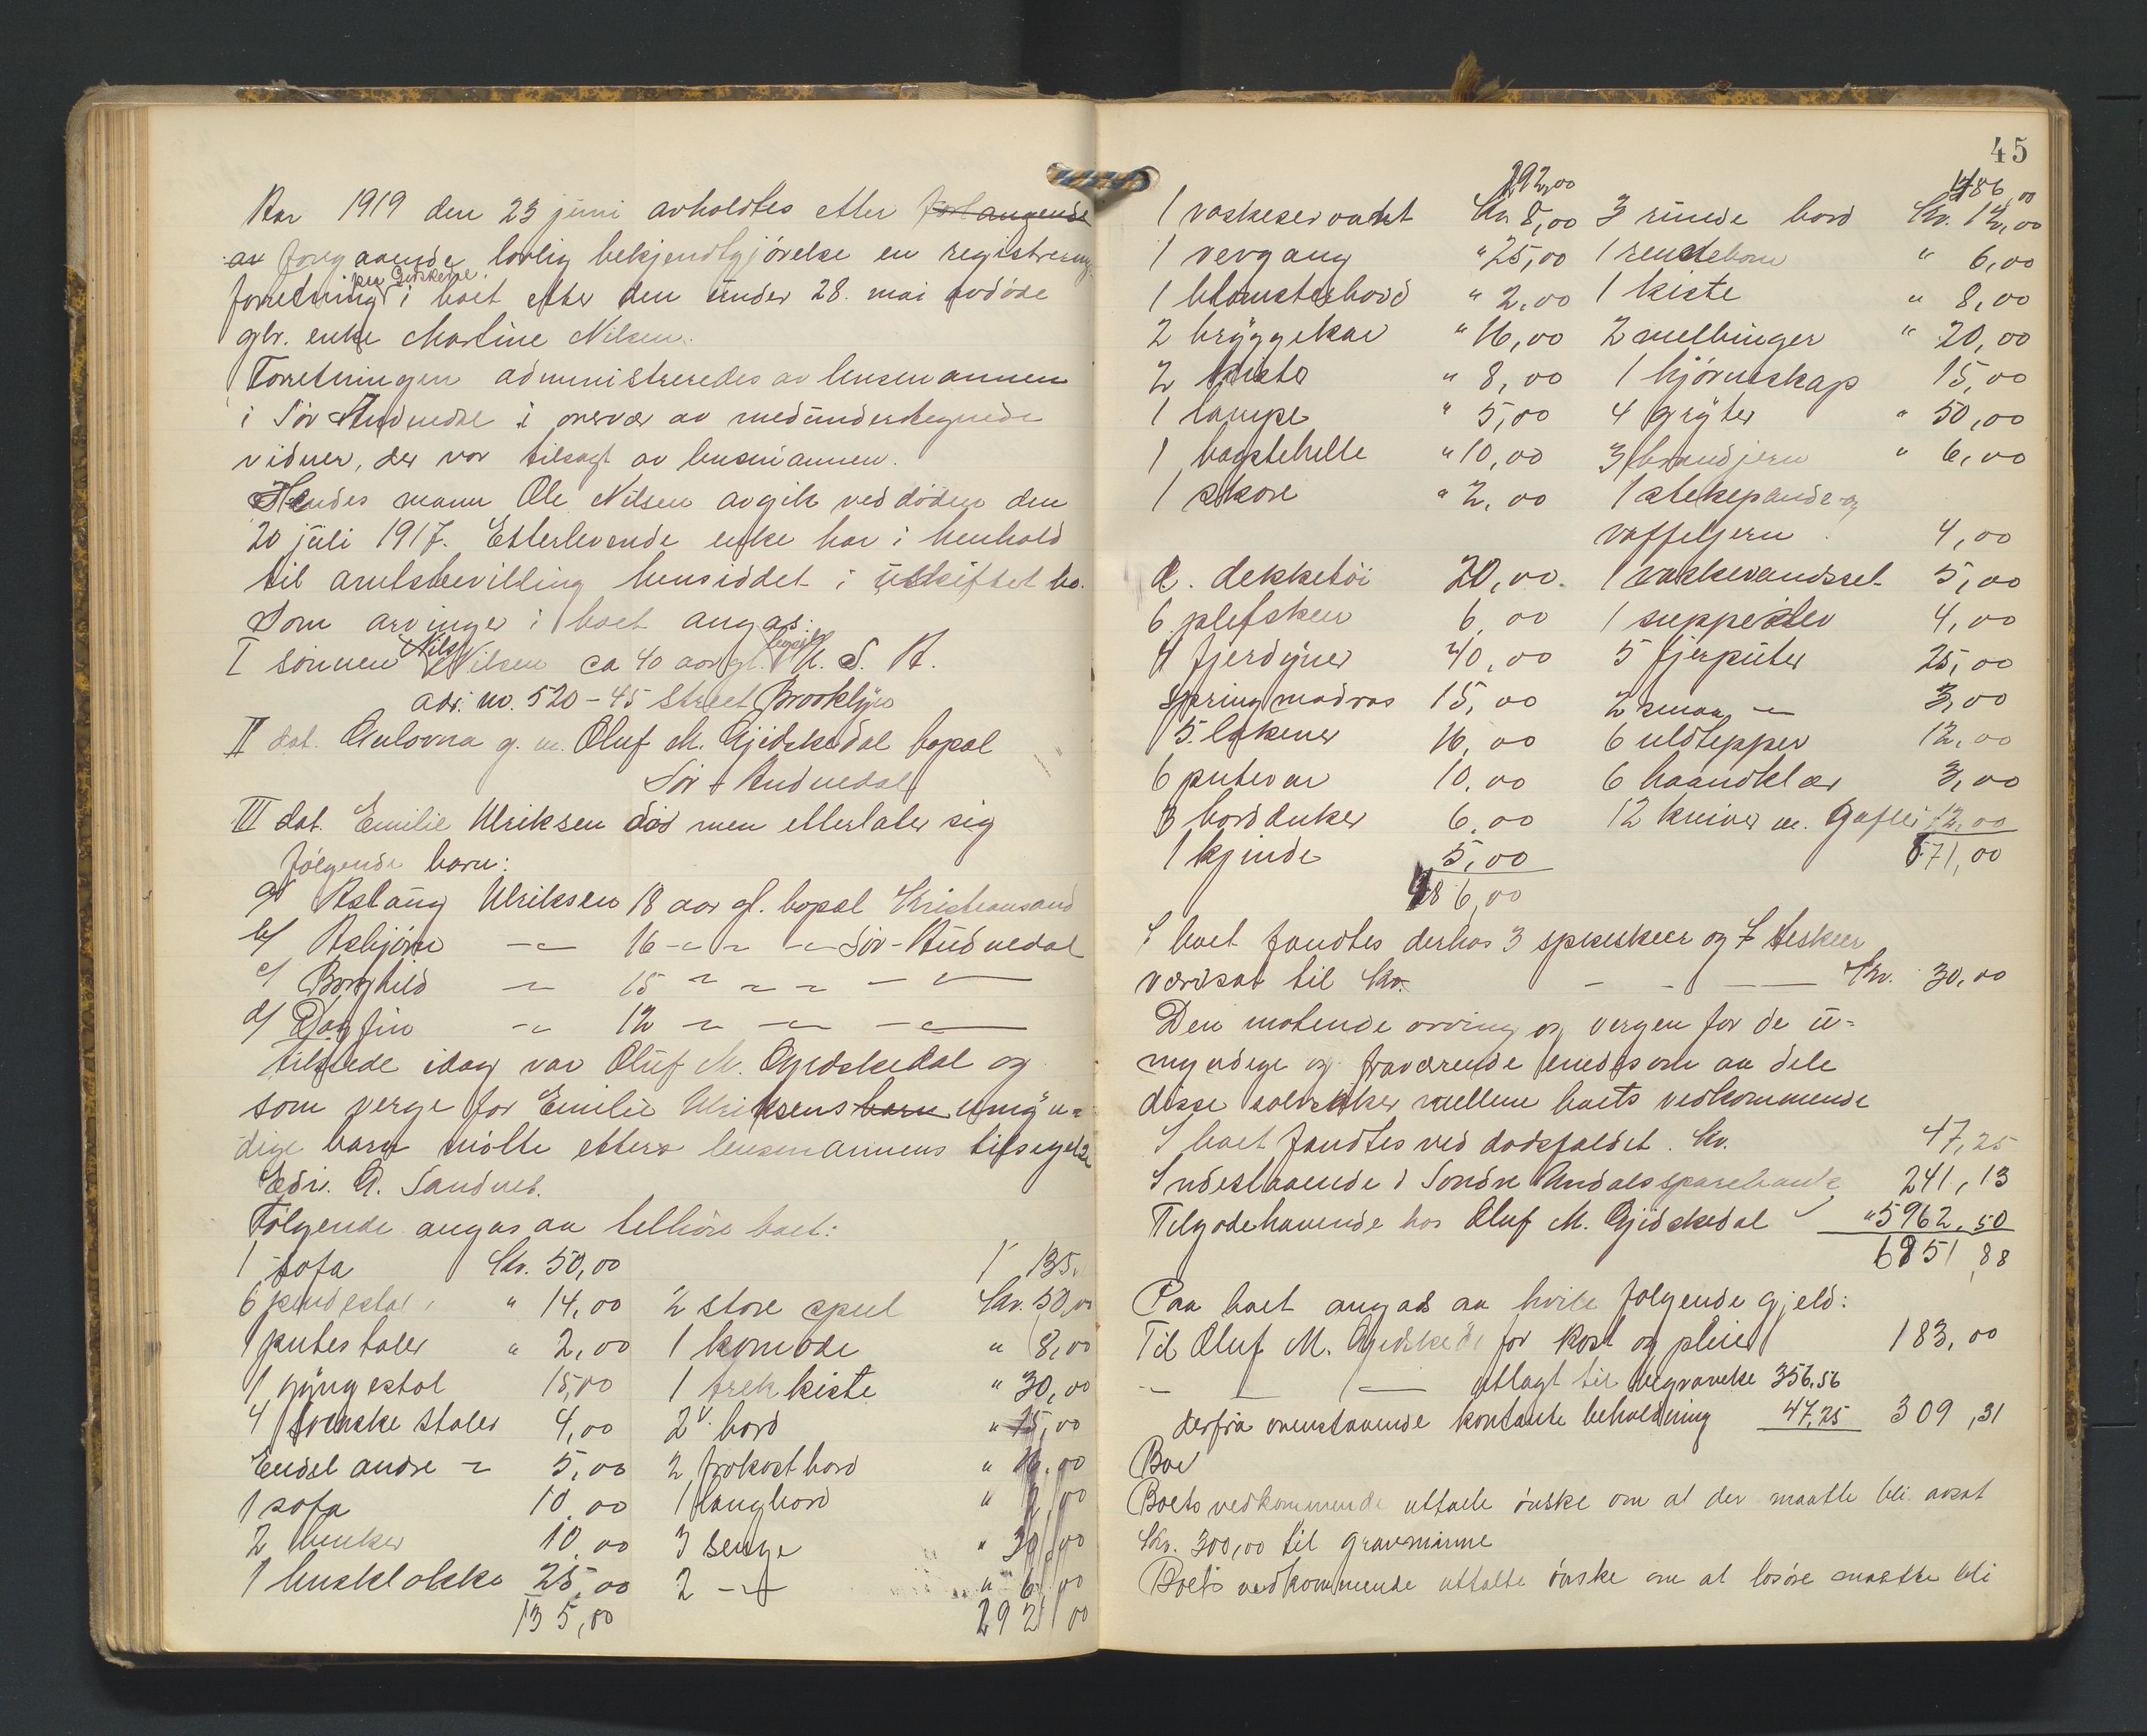 Aar 1919 den 23 juni avholdtes efter forlangende
av forgaaende lovlig bekjendtgjörelse en registrerings
paa Gjidskedal
forretning i boet efter den under 28. mai avdöde
gbr. enke Martine Nilsen.
Forretningen administreredes av lensmannen
i Sör Audnedal i overvær av medunderskegnede
vidner, der var tilsagt av lensmannen.
Hendes mann Ole Nilsen avgik ved döden den
20 juli 1917. Efterlevende enke har i henhold
til amtsbevilling hensiddet i uskiftet bo.
Som arvinger i boet angas:
I sönnen Nils Nilsen ca 40 aar gl. bopæl U. S. A.
adr. no. 520 - 45 Street Brooklyn
II dat. Gulovna g. m. Oluf M. Gjidskedal bopæl
Sör-Audnedal
III dat. Emilie Ulriksen död men efterlater sig
fölgende barn:
a/ Aslaug Ulriksen 18 aar gl. bopæl Kristiansand
b/ Asbjörn — 16 - - - Sör-Audnedal
c/ Borghild — 15 - - - - —
d/ Dagfin — 12 - - - —
tilstede idag var Oluf M. Gjidskedal og
som verge for Emilie Ulriksens barn umyn=
dige barn mötte efter lensmannens tilsigelse
Edv. G. Sandnes.
Fölgende angas aa tilhöre boet:
1 sofa Kr. 50,00 135,
6 pindestol " 14,00 2 store speil Kr. 50,00
1 putestoler " 2,00 1 komode " 8,00
1 gyngestol 15,00 1 trekkiste " 30,00
4 svenske stoler 4,00 2 bord " 15,00
Endel andre - 5,00 2 frokostbord " 16,00
1 sofa 10,00 1 langbord " 2,00
2 benker 10,00 3 senge " 30,00
1 husklokke 25,00 2 - " 6,00
135,00 292,00
45
292,00 486,00
1 vaskeservandt Kr. 8,00 3 runde bord Kr. 12,00
1 vevgang " 25,00 1 rundebom " 6,00
1 blomsterbord " 2,00 1 kiste " 8,00
2 bryggekar " 16,00 2 melbinger " 20,00
2 kister " 8,00 1 hjörneskap 15,00
1 lampe " 5,00 4 gryter " 50,00
1 bagstehelle " 10,00 3 brandjern " 6,00
1 skore " 2,00 1 stekepande og
vaffeljern 4,00
d. dekketöi 20,00. 1 vaskevandssel 5,00
6 pletskeer 6,00 1 suppeslev 4,00
4 fjerdyner 40,00 5 fjerputer 25,00
Springmadras 15,00 2 smaa - 3,00
5 lakener 16,00 6 uldtepper 12,00
6 putevar 10,00 6 haandklær 3,00
3 bordduker 6,00 12 kniver m. Gafler 12,00
1 kjinde 5,00 671,00
486,00
I boet fandtes derhos 3 spiseskeer og 7 teskeer
værdsat til Kr. - - — Kr. 30,00
Den mötende arving og vergen for de u=
myndige og fraværende enedes om aa dele
disse sölvsaker mellem boets vedkommende
I boet fandtes ved dödsfaldet. Kr. 47,25
Indestaaende i Söndre Undals sparebank 241,13
Tilgodehavende hos Oluf M. Gjidskedal " 5962,50
6951,88
Paa boet angas aa hvile fölgende gjeld:
Til Oluf M. Gjidskedal for kost og pleie 183,00
- — — utlagt til begravelse 356,56
derfra ovenstaaende kontante beholdning 47,25 309,31
Boe
Boets vedkommende uttalte önske om at der maatte bli avsat
Kr. 300,00 til gravminne
Boets vedkommende uttalte önske om at lösöre maatte bli